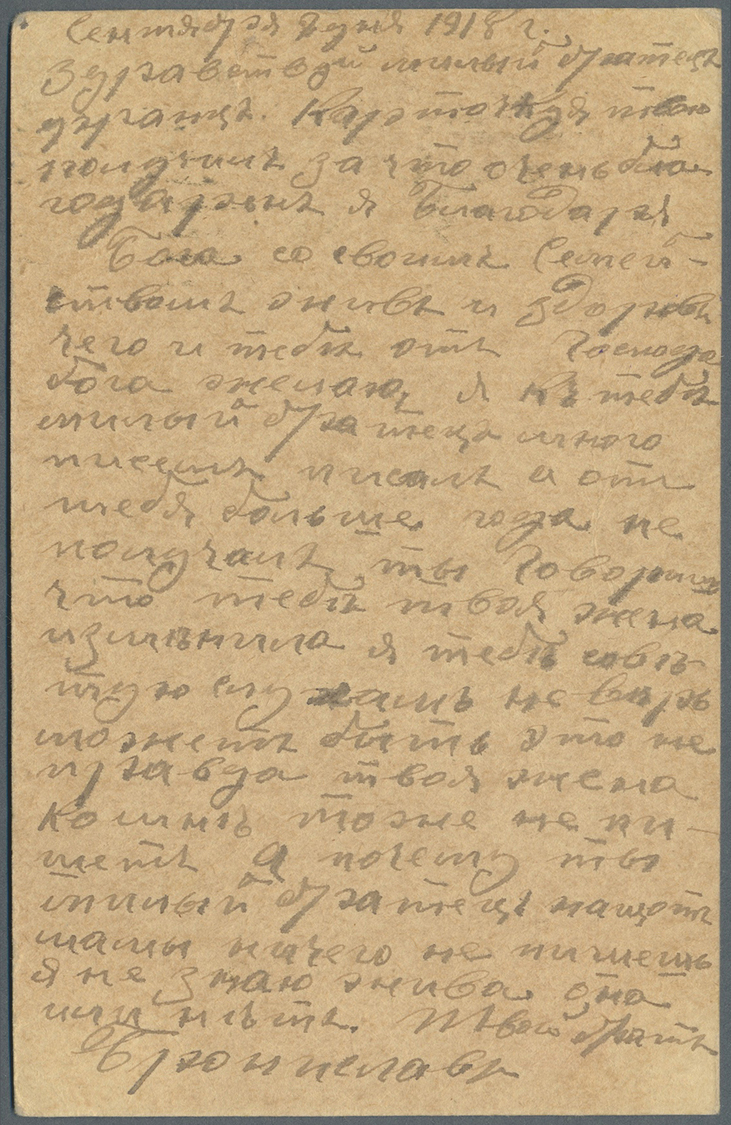 Сентября 8 дня 1918 г.
Здравствуй милый братецъ
Карточку твою
получилъ за что очень бла
годаренъ я Благодаря
Бога со своимъ Семей-
ствомъ живъ и здоровъ
чего и тебѣ отъ Господа
бога желаю, я къ тебѣ
милый братецъ много
писемъ писалъ а отъ
тебя больше года не
получалъ ты говоришь
что тебѣ твоя жена
измѣнила я тебѣ совѣ-
тую слухамъ не верь
можетъ быть это не
правда твоя жена
ко мнѣ тоже не пи-
шетъ А почему ты
милый братецъ нащотъ
мамы ничего не пишешь
я не знаю жива она
или нѣтъ. Твой братъ
Брониславъ